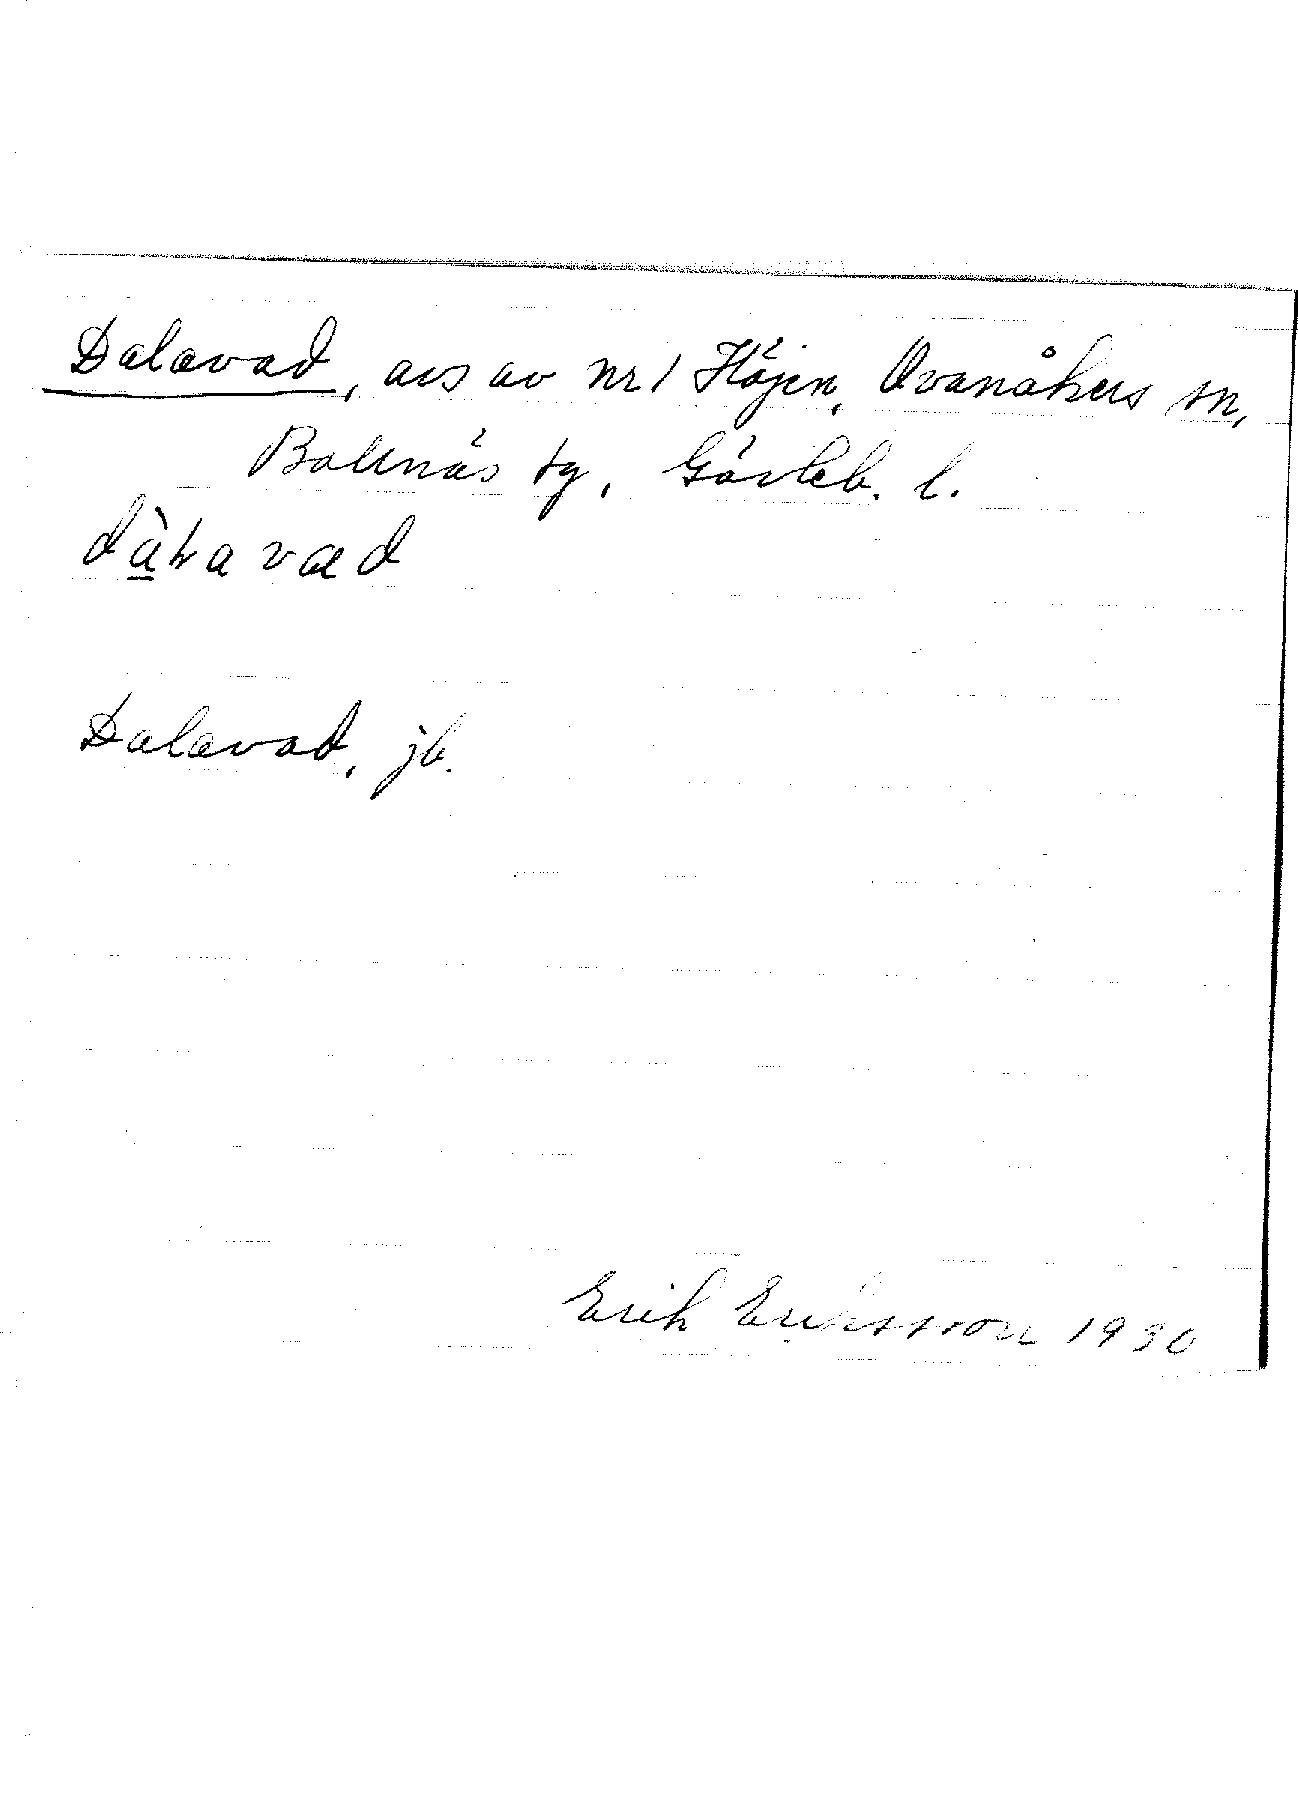 Dalavad, avs av nr 1 Höjen, Ovanåkers sn,
Bollnäs tg, Gävleb. l.
Dalavad, jb.
Erik Eriksson 1930